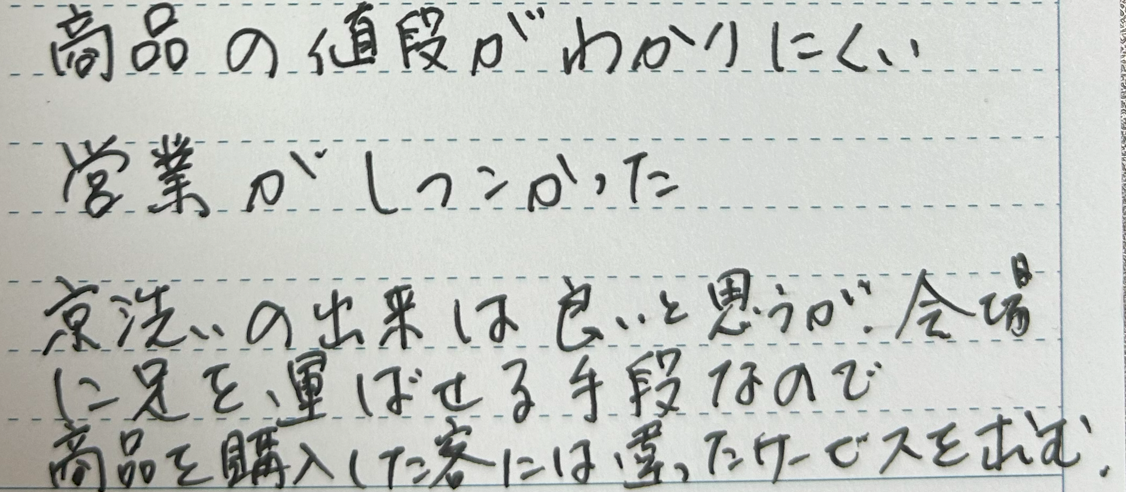 商品の値段がわかりにくい
営業がしつこかった
京洗いの出来は良いと思うが、会場
に足を運ばせる手段なので
商品を購入した客には違ったサービスを求む。